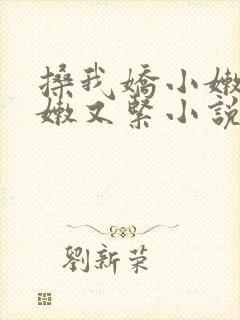 搡我嬌小嫩
嫩又緊小說
劉新荣